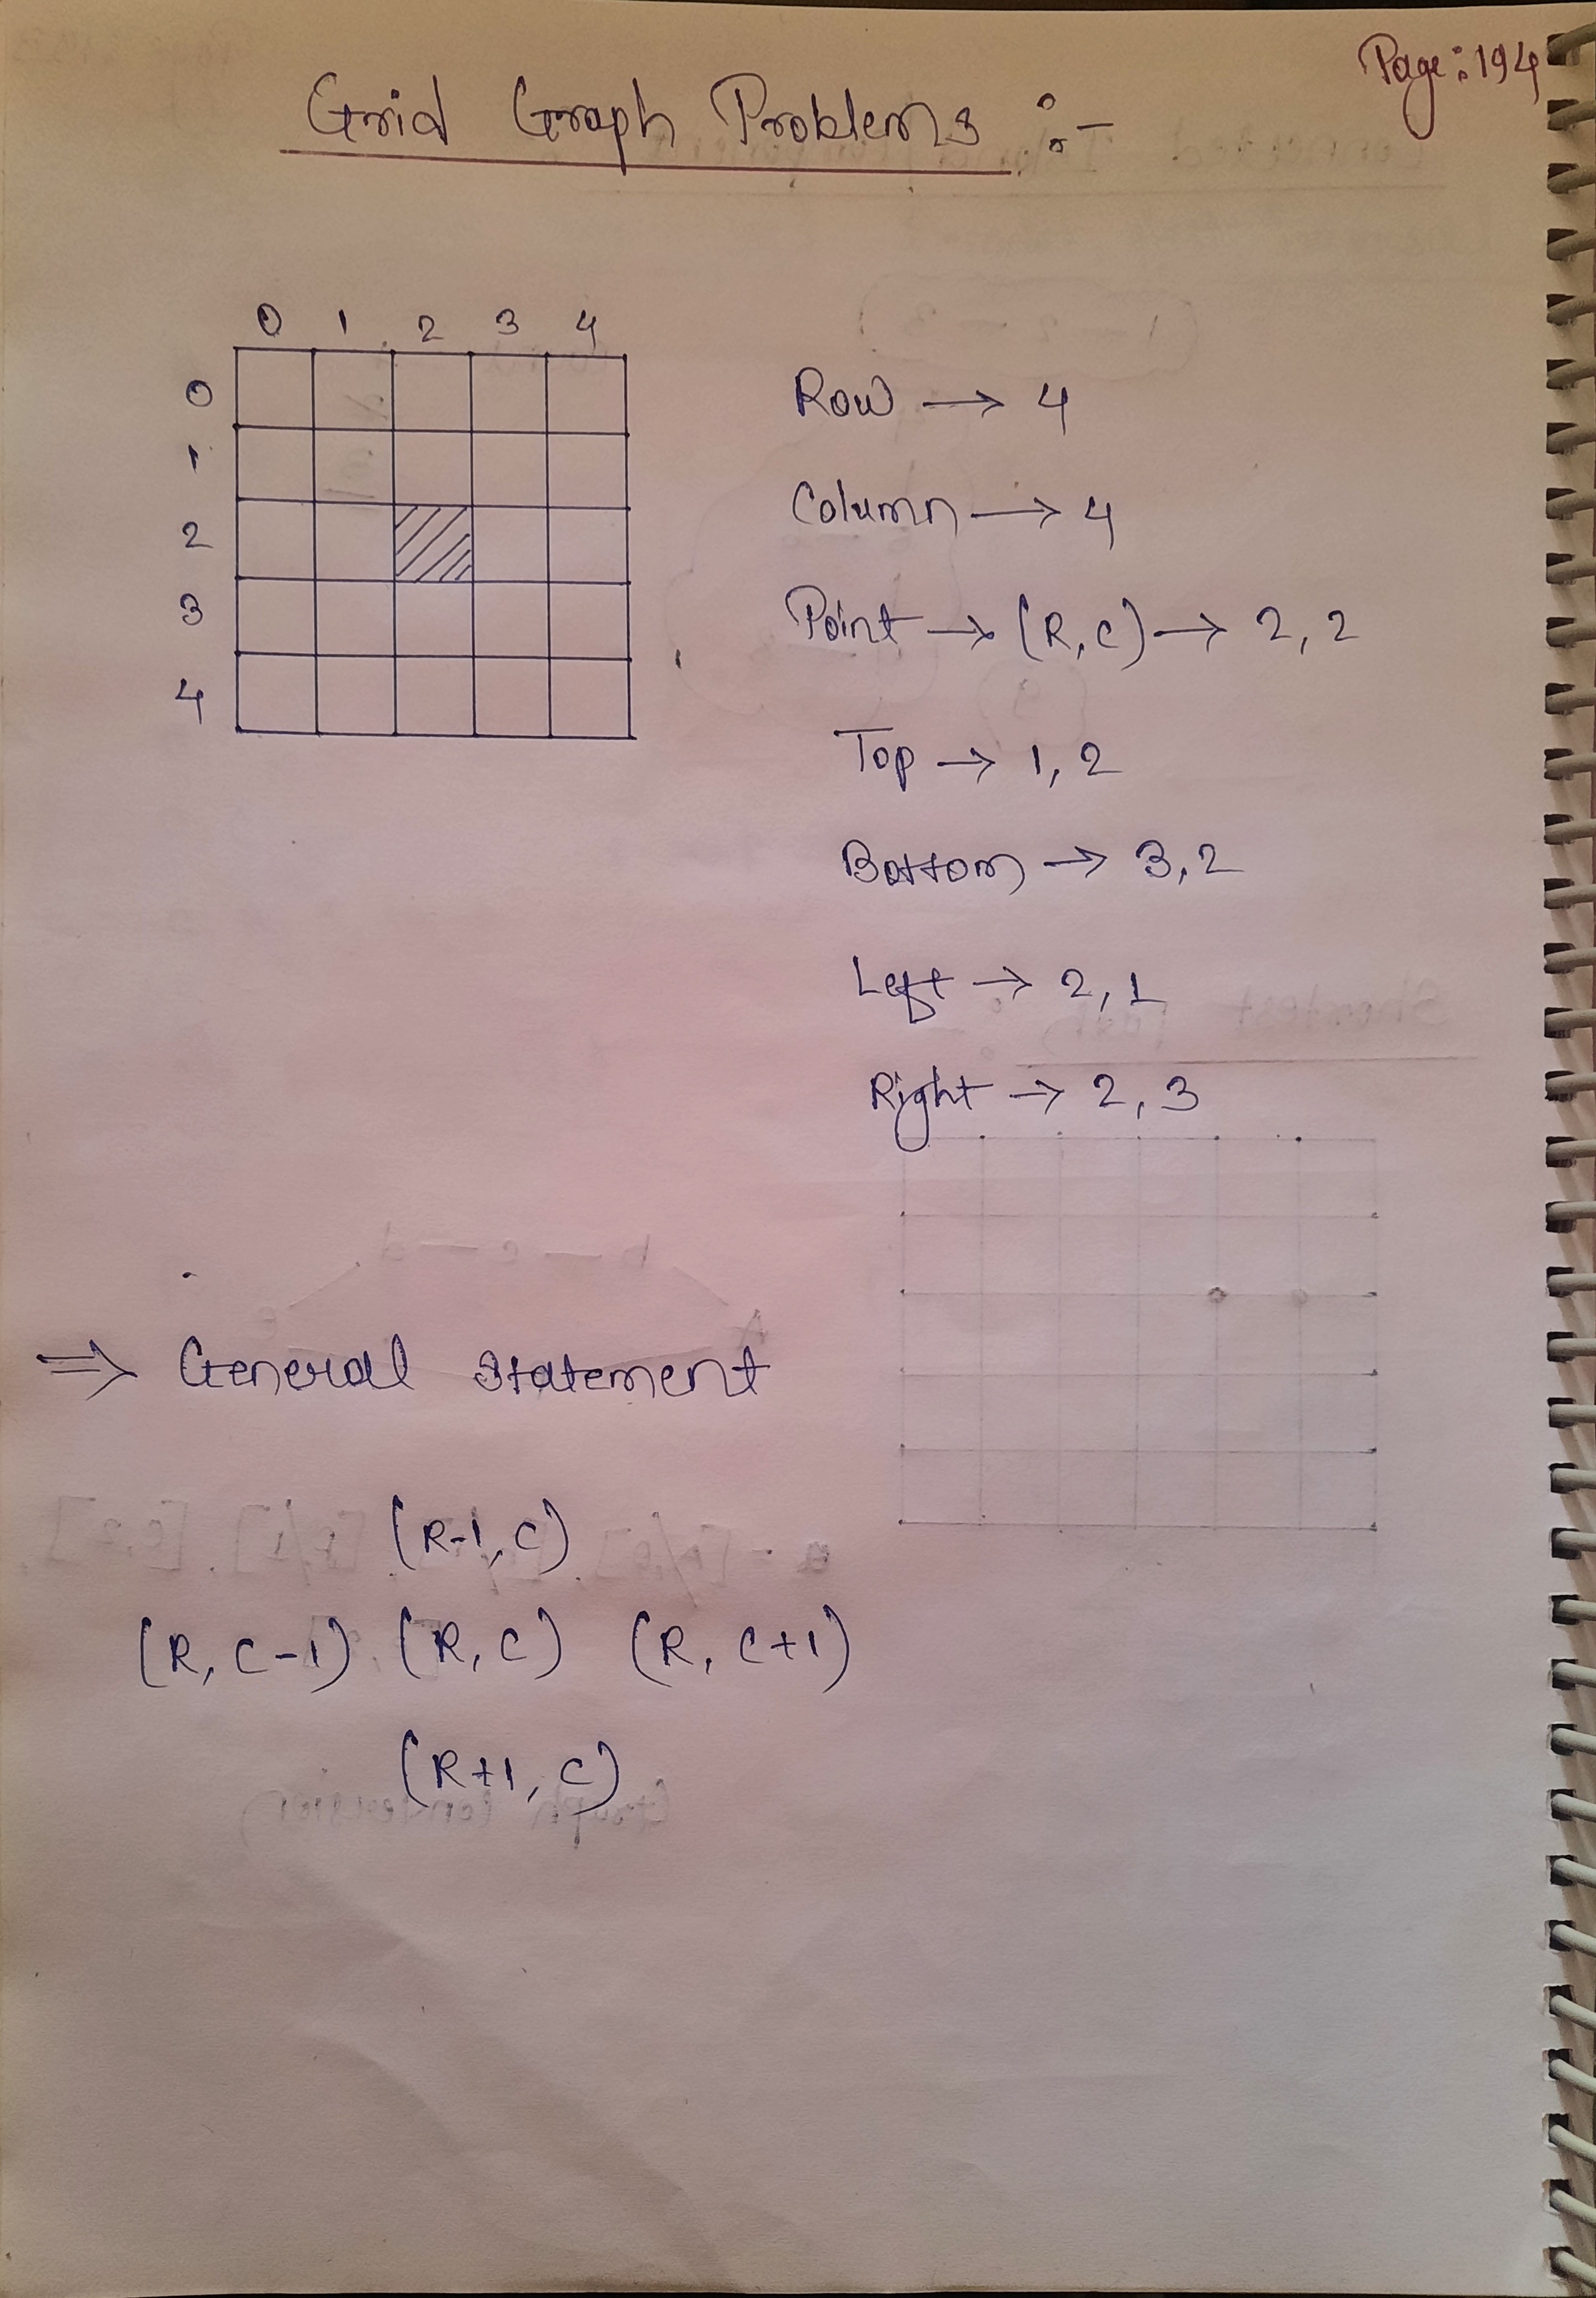 Page: 194
Grid Graph Problems :-
0 1 2 3 4
0
1
2
3
4
Row → 4
Column → 4
Point → (R, C) → 2, 2
Top → 1, 2
Bottom → 3, 2
Left → 2, 1
Right → 2, 3
⇒ General Statement
(R-1, C)
(R, C-1) (R, C) (R, C+1)
(R+1, C)